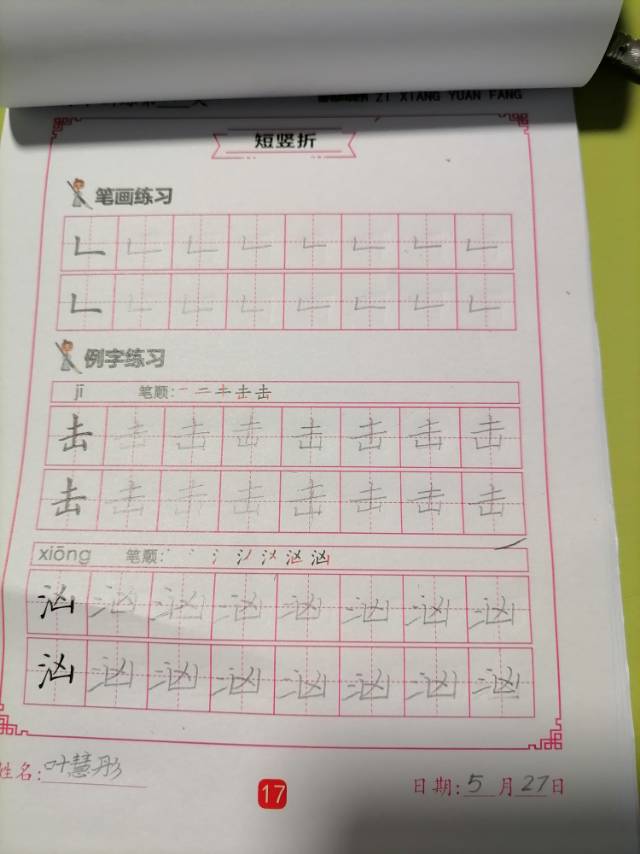 ZI XIANG YUAN FANG
短竖折
笔画练习
𠃊 𠃊 𠃊 𠃊 𠃊 𠃊 𠃊 𠃊
𠃊 𠃊 𠃊 𠃊 𠃊 𠃊 𠃊 𠃊
例字练习
jī 笔顺: 一 二 キ 击 击
击 击 击 击 击 击 击 击
击 击 击 击 击 击 击 击
xiōng 笔顺:
汹 汹 汹 汹 汹 汹 汹 汹
汹 汹 汹 汹 汹 汹 汹 汹
姓名: 叶慧彤
17
日期: 5 月 27 日